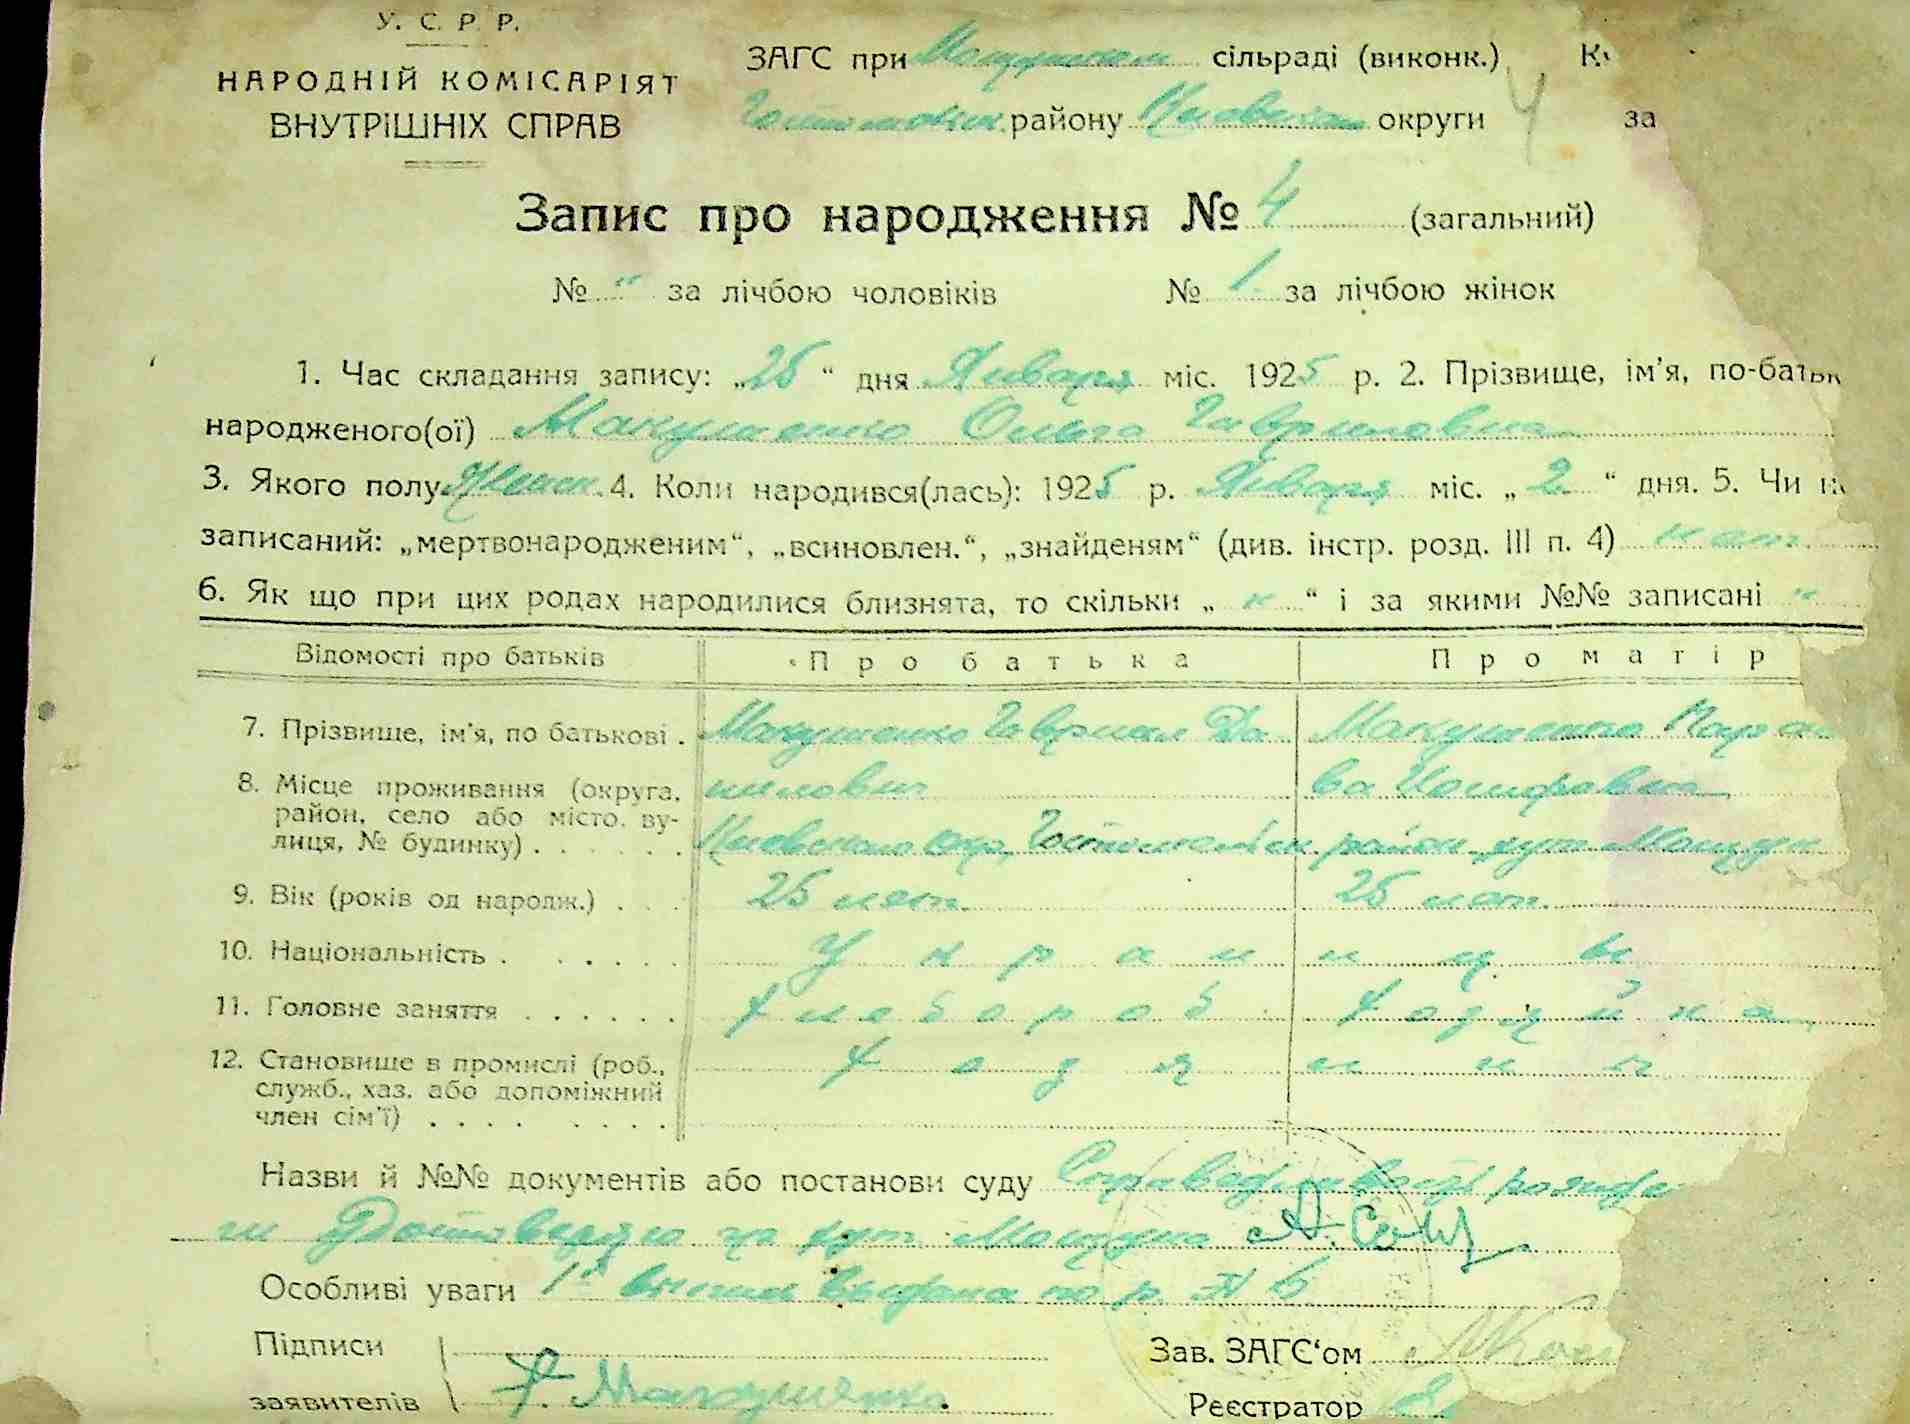 У. С. Р. Р.
НАРОДНІЙ КОМІСАРІЯТ
ВНУТРІШНІХ СПРАВ
ЗАГС при Мощунском сільраді (виконк.)
Гостомльск. району Киевской округи 4 за
Запис про народження № 4 (загальний)
№ " за лічбою чоловіків № 1 за лічбою жінок
1. Час складання запису: „25“ дня Января міс. 1925 р. 2. Прізвище, ім'я, по-батьк
народженого(ої) Макушенко Ольга Гавриловна
3. Якого полу Женск. 4. Коли народився(лась): 1925 р. Января міс. „2“ дня. 5. Чи не
записаний: „мертвонародженим“, „всиновлен.“, „знайденям“ (див. інстр. розд. III п. 4) нет.
6. Як що при цих родах народилися близнята, то скільки „ " “ і за якими №№ записані "
Відомості про батьків Про батька Про матір
7. Прізвище, ім'я, по батькові . Макушенко Гавриил Да Макушенко Параске
8. Місце проживання (округа, нилович ва Иосифовна
район, село або місто, ву-
лиця, № будинку) . . . . . . Киевского окр, Гостомльск. район хут Мощун
9. Вік (років од народж.) . . . 25 лет. 25 лет.
10. Національність . . . . . . Украинцы
11. Головне заняття . . . . . . Хлебороб Хозяйка
12. Становише в промислі (роб., Хозяин
служб., хаз. або допоміжний
член сім'ї) . . . . . . . .
Назви й №№ документів або постанови суду
хут Мощуна
Особливі уваги 1я выпись выдана по р. № 6
Підписи Зав. ЗАГС'ом
заявителів Макушенко. Реєстратор